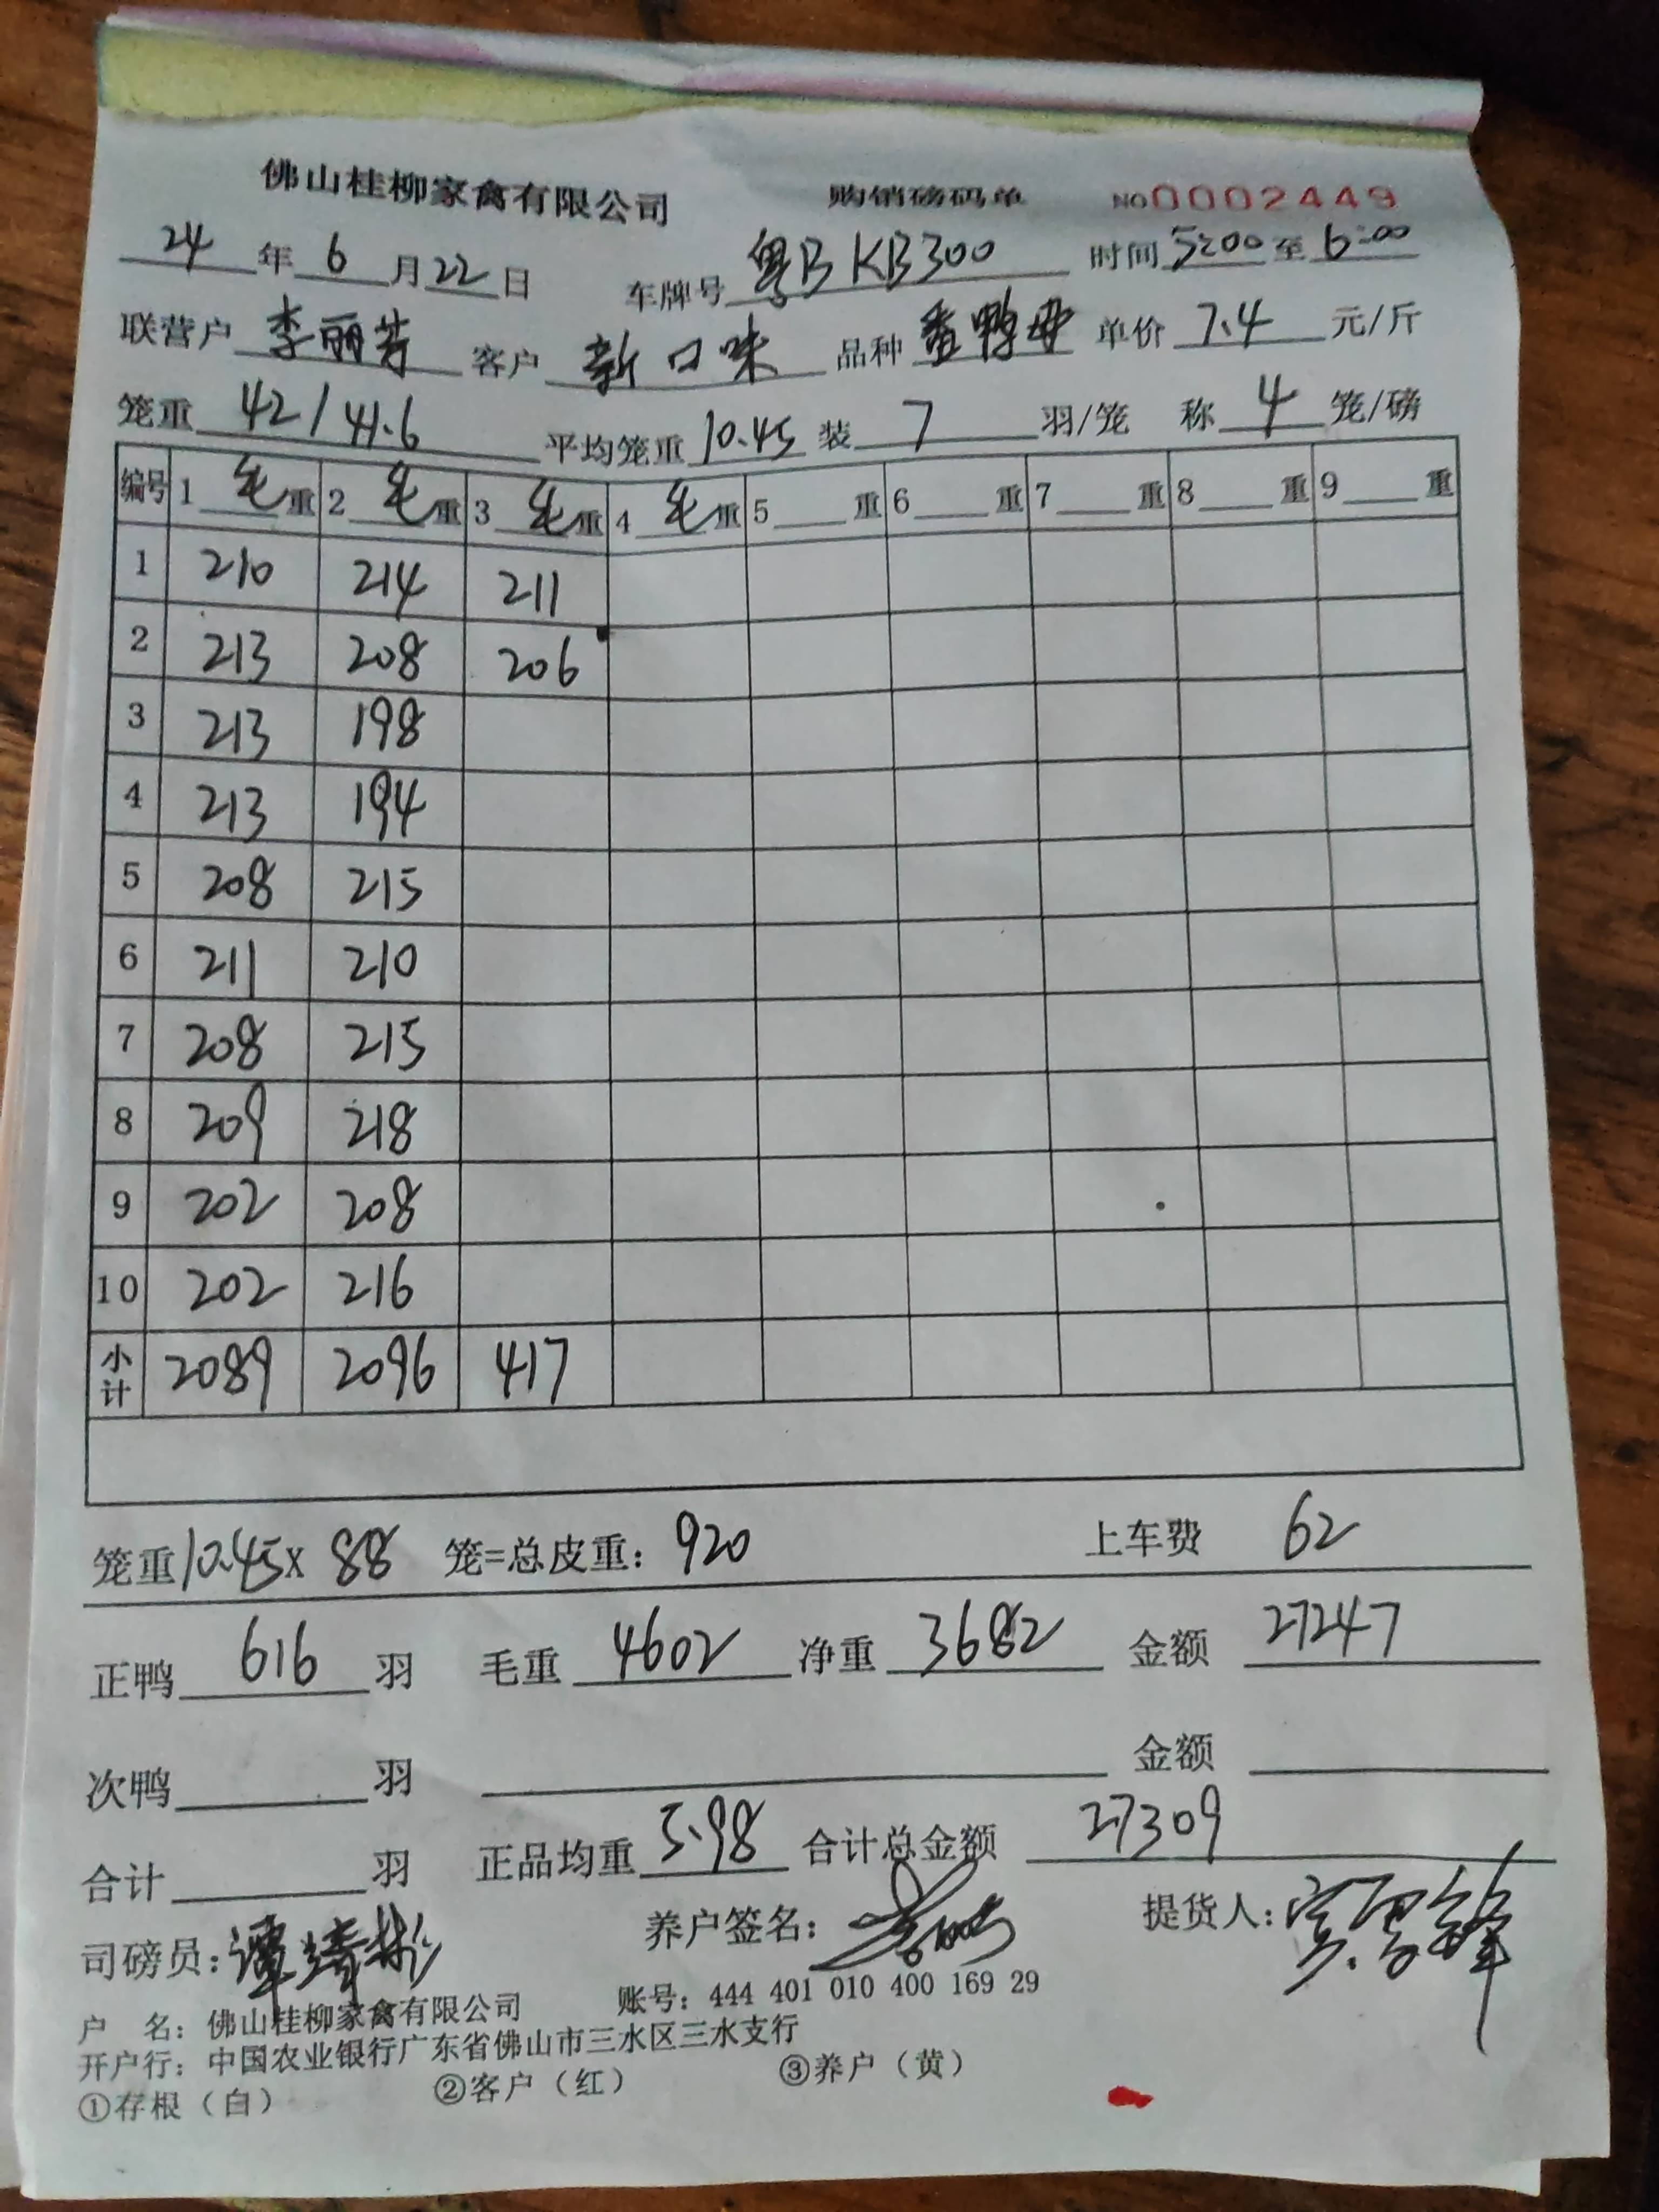 佛山桂柳家禽有限公司 购销磅码单 NO 0002449
24 年 6 月 22 日 车牌号 粤B KB300 时间 5:00 至 6:00
联营户 李丽芳 客户 新口味 品种 番鸭母 单价 7.4 元/斤
笼重 42/41.6 平均笼重 10.45 装 7 羽/笼 称 4 笼/磅
编号 1 毛重 2 毛重 3 毛重 4 毛重 5 重 6 重 7 重 8 重 9 重
1 210 214 211
2 213 208 206
3 213 198
4 213 194
5 208 215
6 211 210
7 208 215
8 209 218
9 202 208
10 202 216
小计 2089 2096 417
笼重 10.45 x 88 笼=总皮重: 920 上车费 62
正鸭 616 羽 毛重 4602 净重 3682 金额 27247
次鸭 羽 金额
合计 羽 正品均重 5.98 合计总金额 27309
司磅员: 养户签名: 提货人:
户 名: 佛山桂柳家禽有限公司 账号: 444 401 010 400 169 29
开户行: 中国农业银行广东省佛山市三水区三水支行
①存根（白） ②客户（红） ③养户（黄）